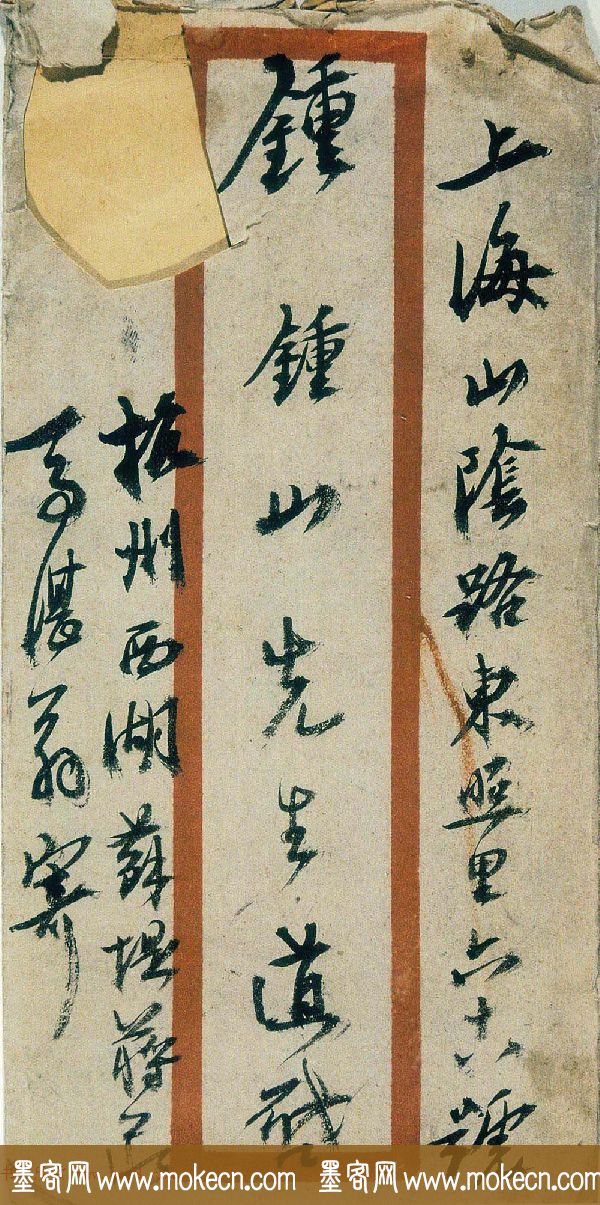 上海山陰路東照里六十八號
鍾鍾山先生道啟
杭州西湖蘇堤蔣莊
馬湛翁寄
墨客网 www.mokecn.com 墨客网 www.mokecn.com